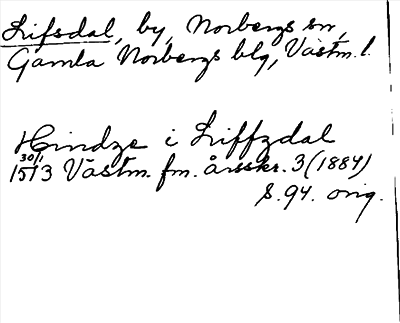 Lifsdal, by, Norbergs sn,
Gamla Norbergs blg, Västm. l.
Hindze i Liffzdal
30/1 1513 Västm. fm. årsskr. 3 (1884)
S. 94. orig.